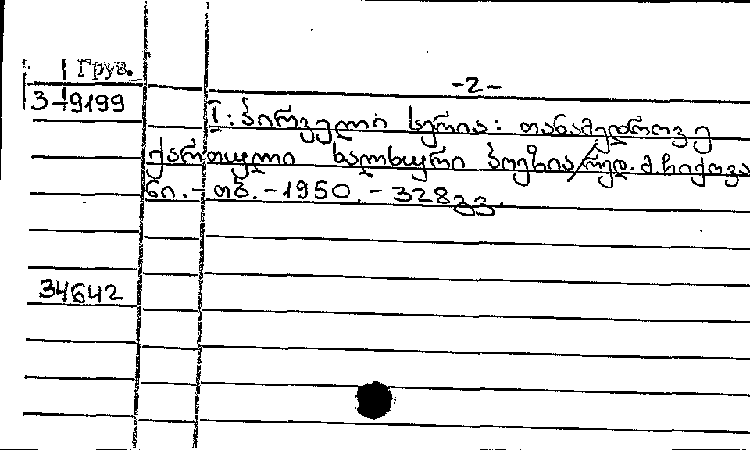 Груз.
-2-
3-9199
I: პირველი სერია: თანამედროვე
ქართული ხალხური პოეზია/რედ. მ. ჩიქოვა
ნი. - თბ. - 1950. - 328 გვ.
34642